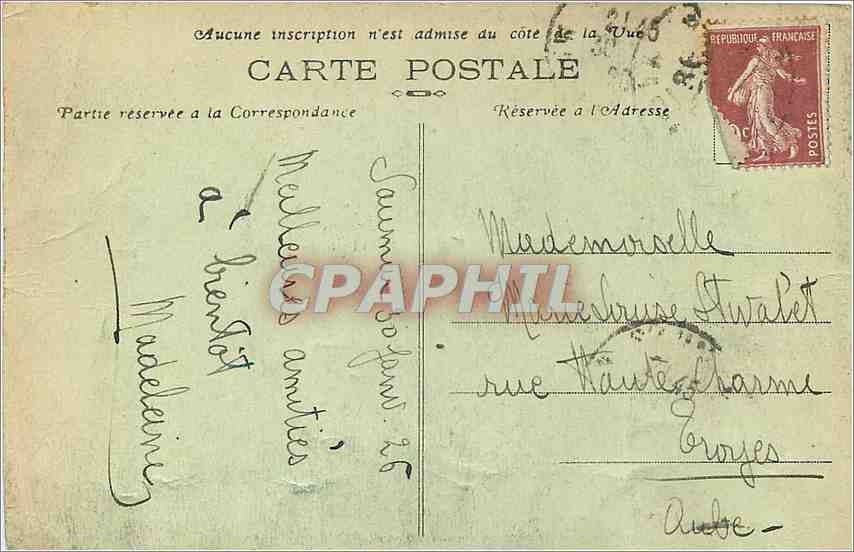 Aucune inscription n'est admise du côté de la Vue
CARTE POSTALE
Partie réservée a la Correspondance
Réservée a l'Adresse
REPUBLIQUE FRANÇAISE
POSTES
Saumur 30 Janv. 26
Meilleures amitiés
à bientôt
Madeleine
CPAPHIL
Mademoiselle
Marie Louise
rue Haute Charme
Troyes
Aube